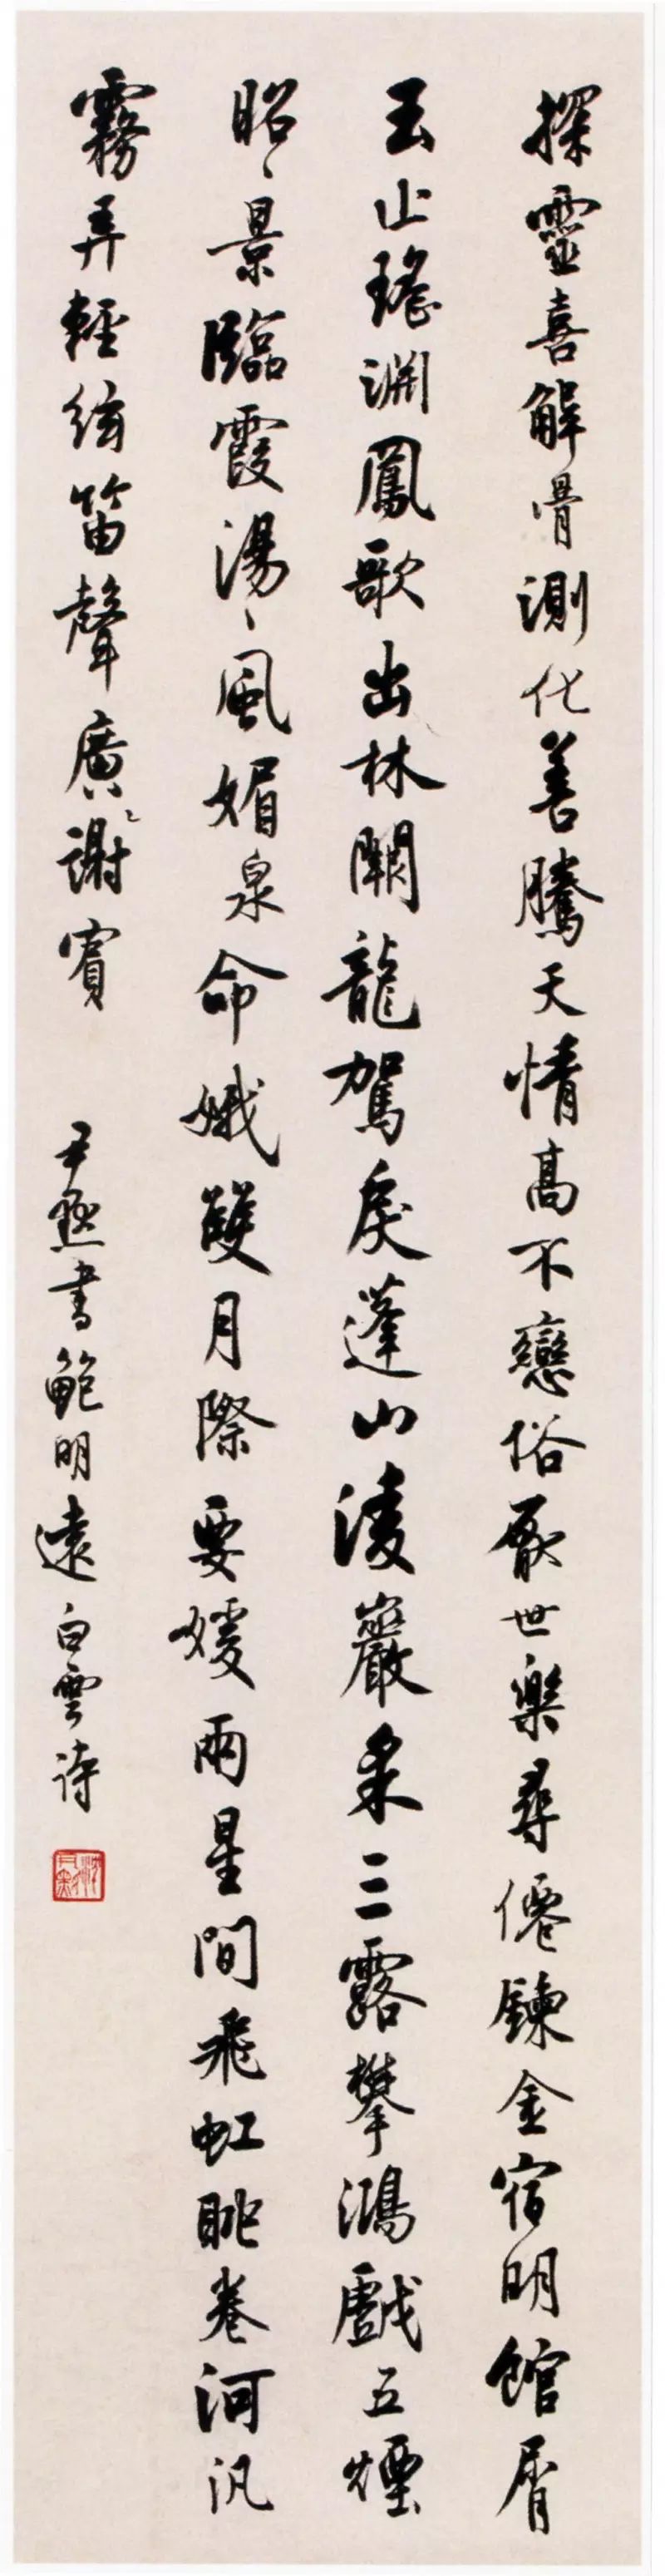 探靈喜解骨測化善騰天情高不戀俗厭世樂尋僊鍊金宿明館屑
玉止瑤淵鳳歌出林闕龍駕戾蓬山淩巖采三露攀鴻戲五煙
昭〻景臨霞湯〻風媚泉命娥雙月際要媛兩星間飛虹眺卷河汎
霧弄輕絃笛聲廣〻謝賓
尹默書鮑明遠白雲詩